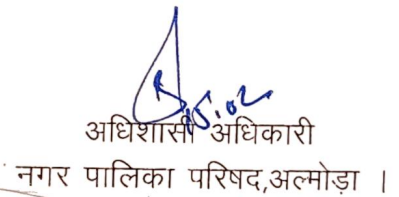 अधिशासी अधिकारी
नगर पालिका परिषद,अल्मोड़ा ।